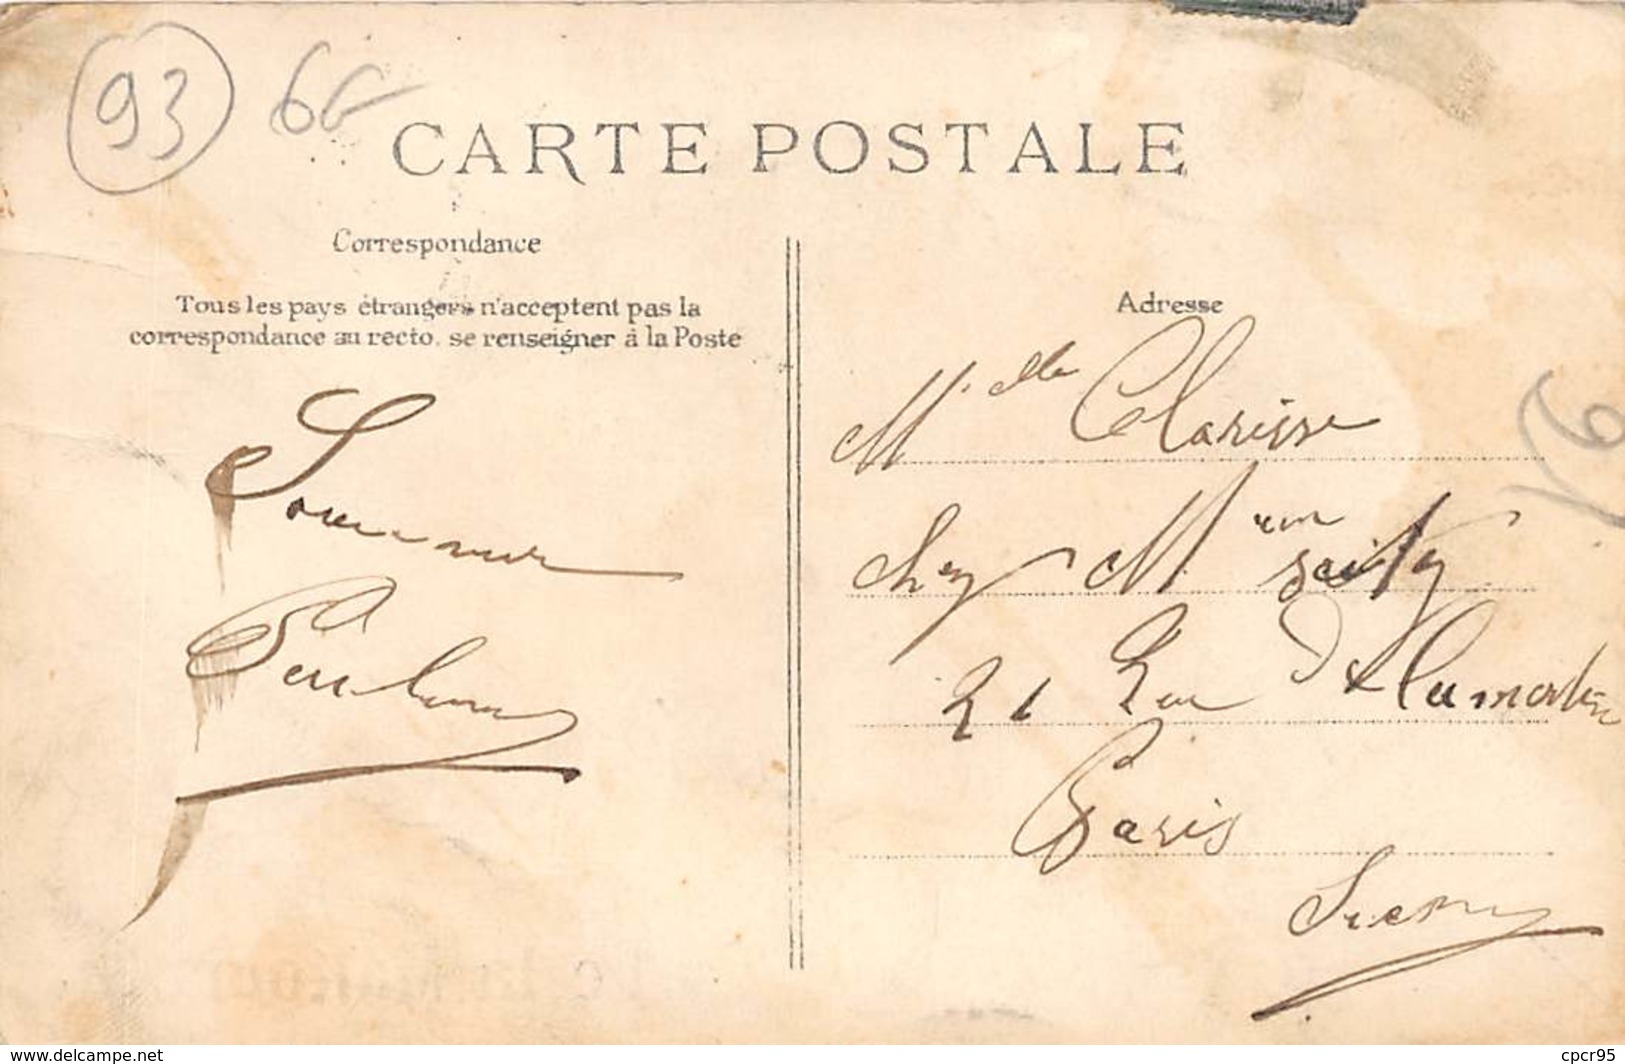 93
CARTE POSTALE
Correspondance
Tous les pays étrangers n'acceptent pas la
correspondance au recto, se renseigner à la Poste
Adresse
Melle Clarisse
chez Mme
21 Rue Lamartine
Paris
www.delcampe.net
cpcr95